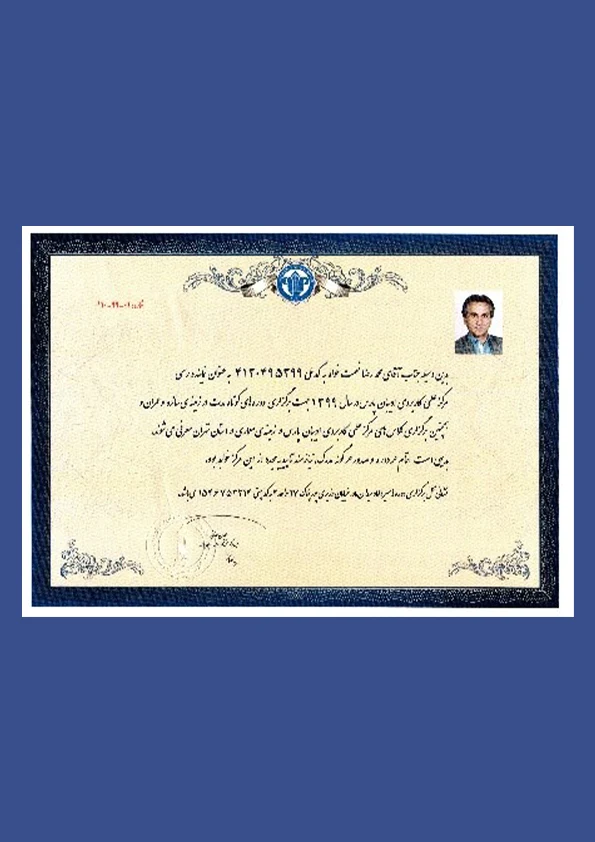 شماره: ۰۱-۹۹-۱۱۰
بدین وسیله جناب آقای محمد رضا نعمت خواه به کد ملی ۴۱۳۰۴۹۵۳۹۹ به عنوان نماینده رسمی
مرکز علمی کاربردی ادیبان پارس در سال ۱۳۹۹ جهت برگزاری دوره های کوتاه مدت در زمینه ی سازه و عمران و
همچنین برگزاری کلاس های مرکز علمی کاربردی ادیبان پارس در زمینه ی معماری در استان تهران معرفی می شوند.
بدیهی است انجام هر دوره و صدور هر گونه مدرک، نیازمند تاییدیه مجدد از این مرکز خواهد بود.
نشانی محل برگزاری دوره ها خیابان وزیری پور پلاک ۲۷ واحد ۴ به کد پستی ۱۵۴۶۷۵۳۳۱۴ می باشد.